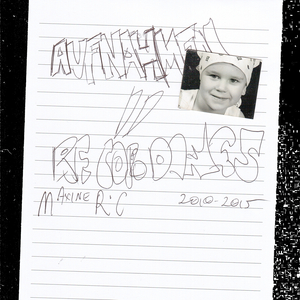 AUFNAHMEN
//
RECORDINGS
MAXINE R.C 2010-2015